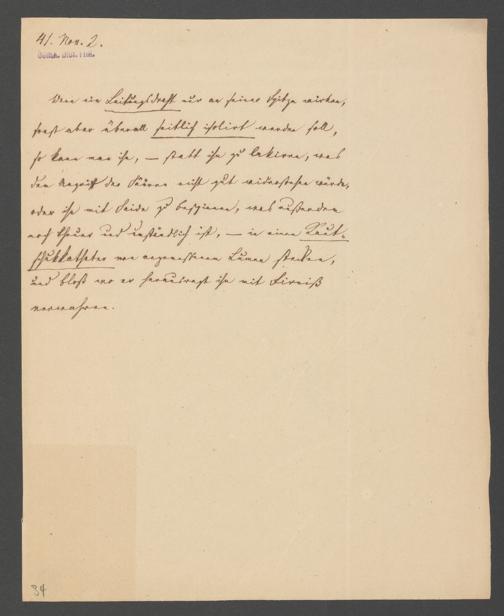 41. Nov. 2.
Wenn ein Leitungsdraht nur an seiner Spitze wirken,
sonst aber überall seitlich isolirt werden soll,
so kann man ihn, — statt ihn zu lakiren, was
den Angriff der Säuren nicht gut widerstehen würde,
oder ihn mit Seide zu bespinnen, was außerdem
noch theuer und umständlich ist, — in einen Kaut-
schukkatheter von angemessenem Lumen stecken,
und bloß wo er herausragt ihn mit Firniß
verwahren.
34